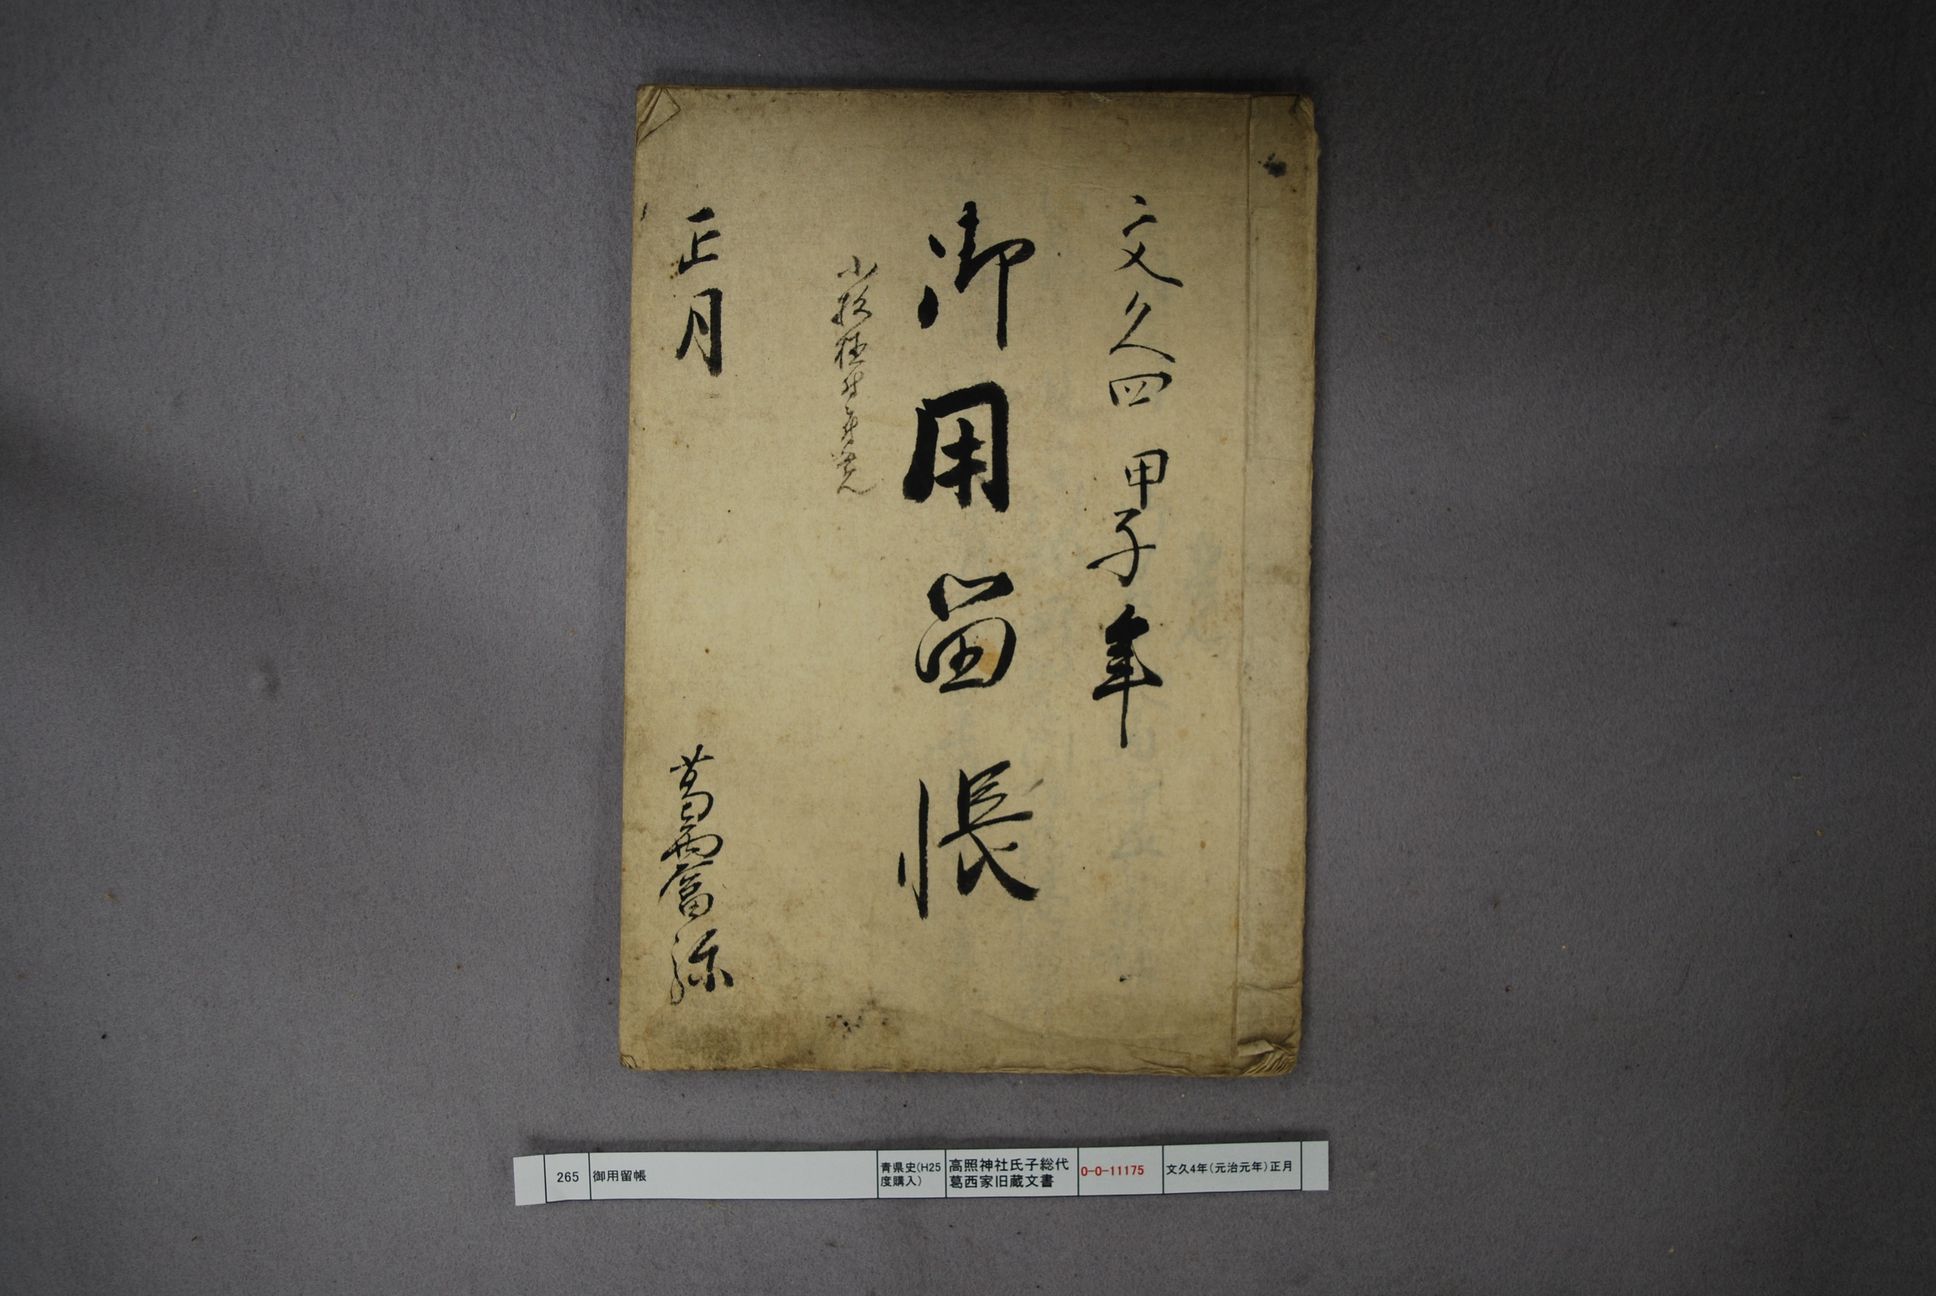 文久四 甲子年
御用留帳
正月
葛西富弥
265
御用留帳
青県史(H25
度購入)
高照神社氏子総代
葛西家旧蔵文書
0-0-11175
文久4年(元治元年)正月